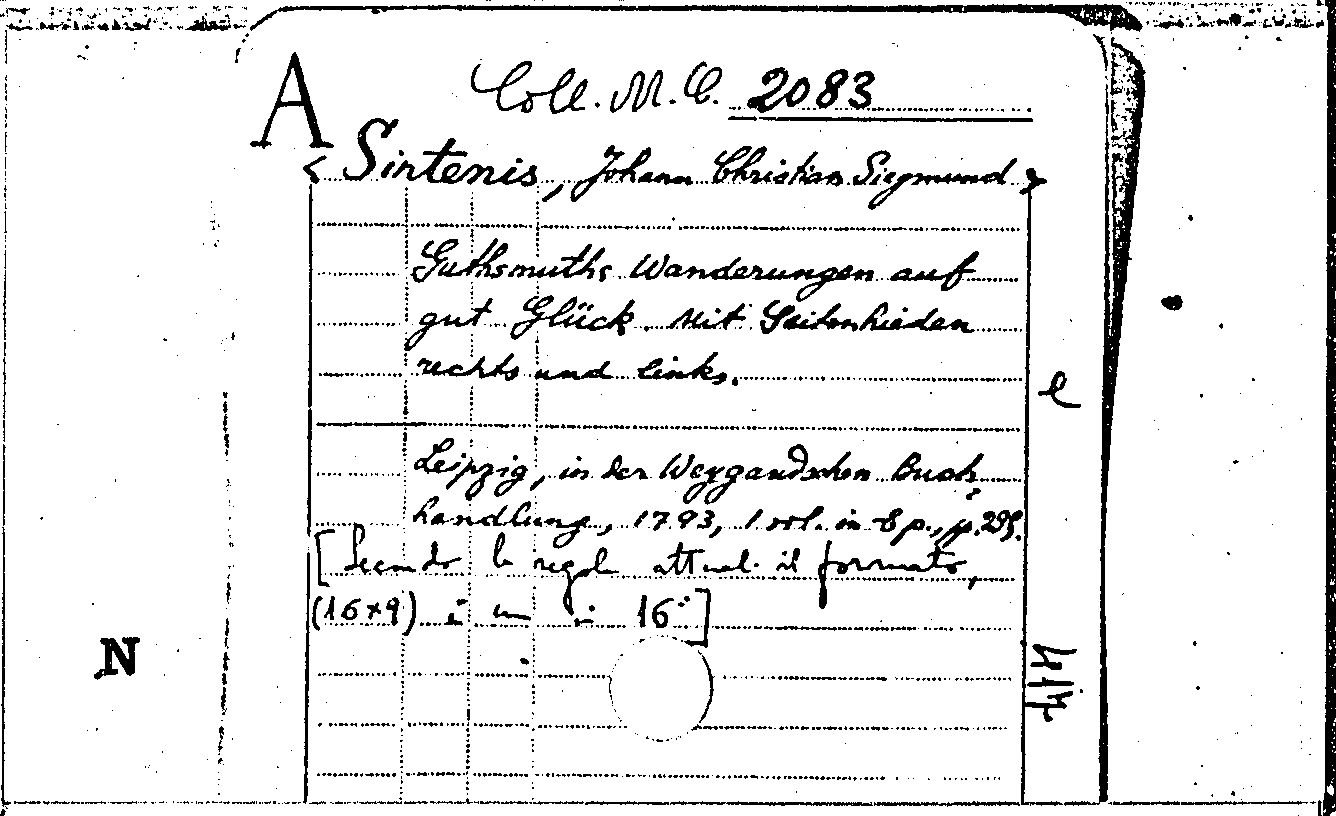 A
Coll. M. C. 2083
< Sintenis, Johann Christian Siegmund >
Guthsmuths Wanderungen auf
gut Glück mit Seitenhieden
rechts und links.
e
Leipzig, in der Weygandschen Buch,
handlung, 1793, 1 vol. in 8 p., p.
[Secondo le regole attuali il formato,
(16x9) è un in 16°]
N